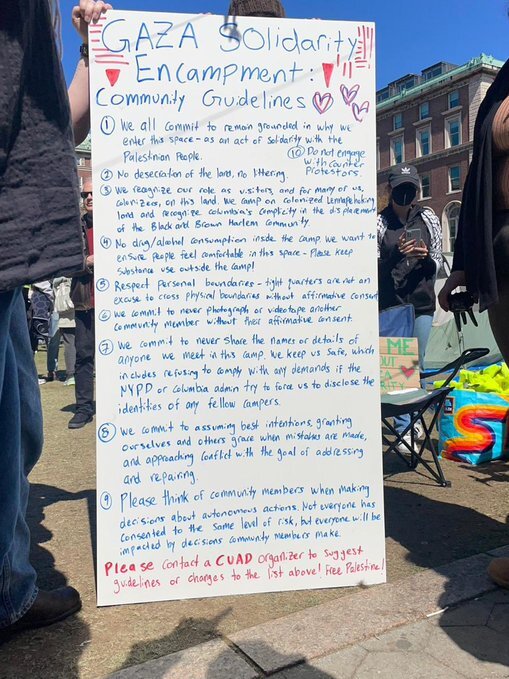 GAZA Solidarity
Encampment:
Community Guidelines
① We all commit to remain grounded in why we
enter this space - as an act of solidarity with the
Palestinian People.
⑩ Do not engage
with counter
protestors.
② No desecration of the land, no littering.
③ We recognize our role as visitors, and for many of us,
colonizers, on this land. We camp on colonized Lennapehoking
land and recognize Columbia's complicity in the displacement
of the Black and Brown Harlem Community.
④ No drug/alcohol consumption inside the camp. We want to
ensure people feel comfortable in this space - Please keep
substance use outside the camp!
⑤ Respect Personal boundaries - tight quarters are not an
excuse to cross physical boundaries without affirmative consent
⑥ We commit to never photograph or videotape another
community member without their affirmative consent.
⑦ We commit to never share the names or details of
anyone we meet in this camp. We keep us safe, which
includes refusing to comply with any demands if the
NYPD or Columbia admin try to force us to disclose the
identities of any fellow campers.
⑧ We commit to assuming best intentions, granting
ourselves and others grace when mistakes are made,
and approaching conflict with the goal of addressing
and repairing.
⑨ Please think of community members when making
decisions about autonomous actions. Not everyone has
consented to the same level of risk, but everyone will be
impacted by decisions community members make.
Please contact a CUAD organizer to suggest
guidelines or changes to the list above! Free Palestine!
ME